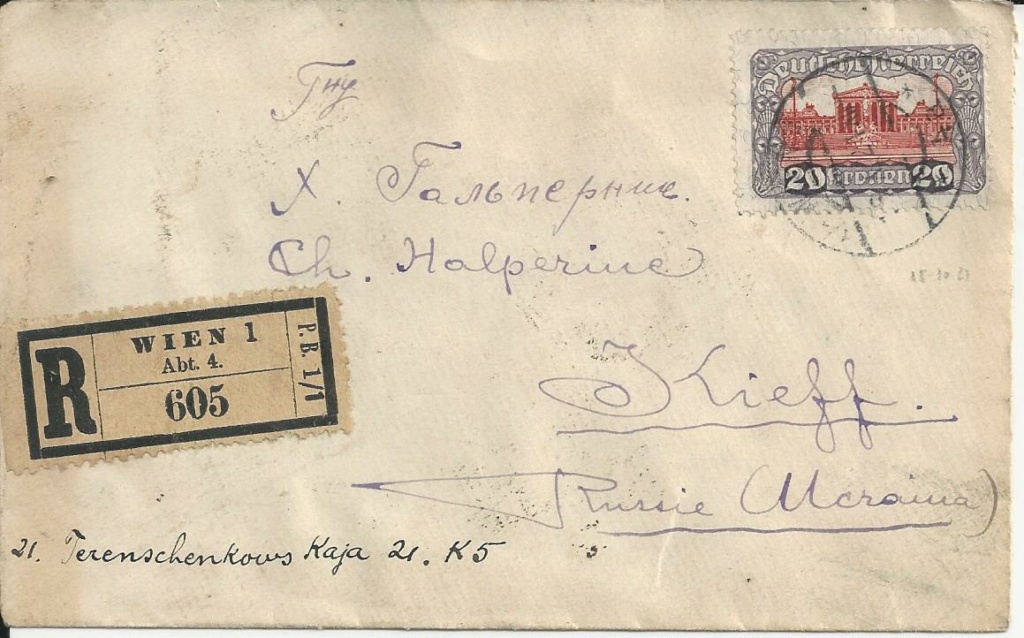 Deutschösterreich
20 Kronen 20
Гну
Х. Гальперник.
Ch. Halperine
WIEN 1
Abt. 4.
605
R
P. B. 1/1
Kieff.
Russie (Ucraina)
21. Terenschenkows Kaja 21. K5